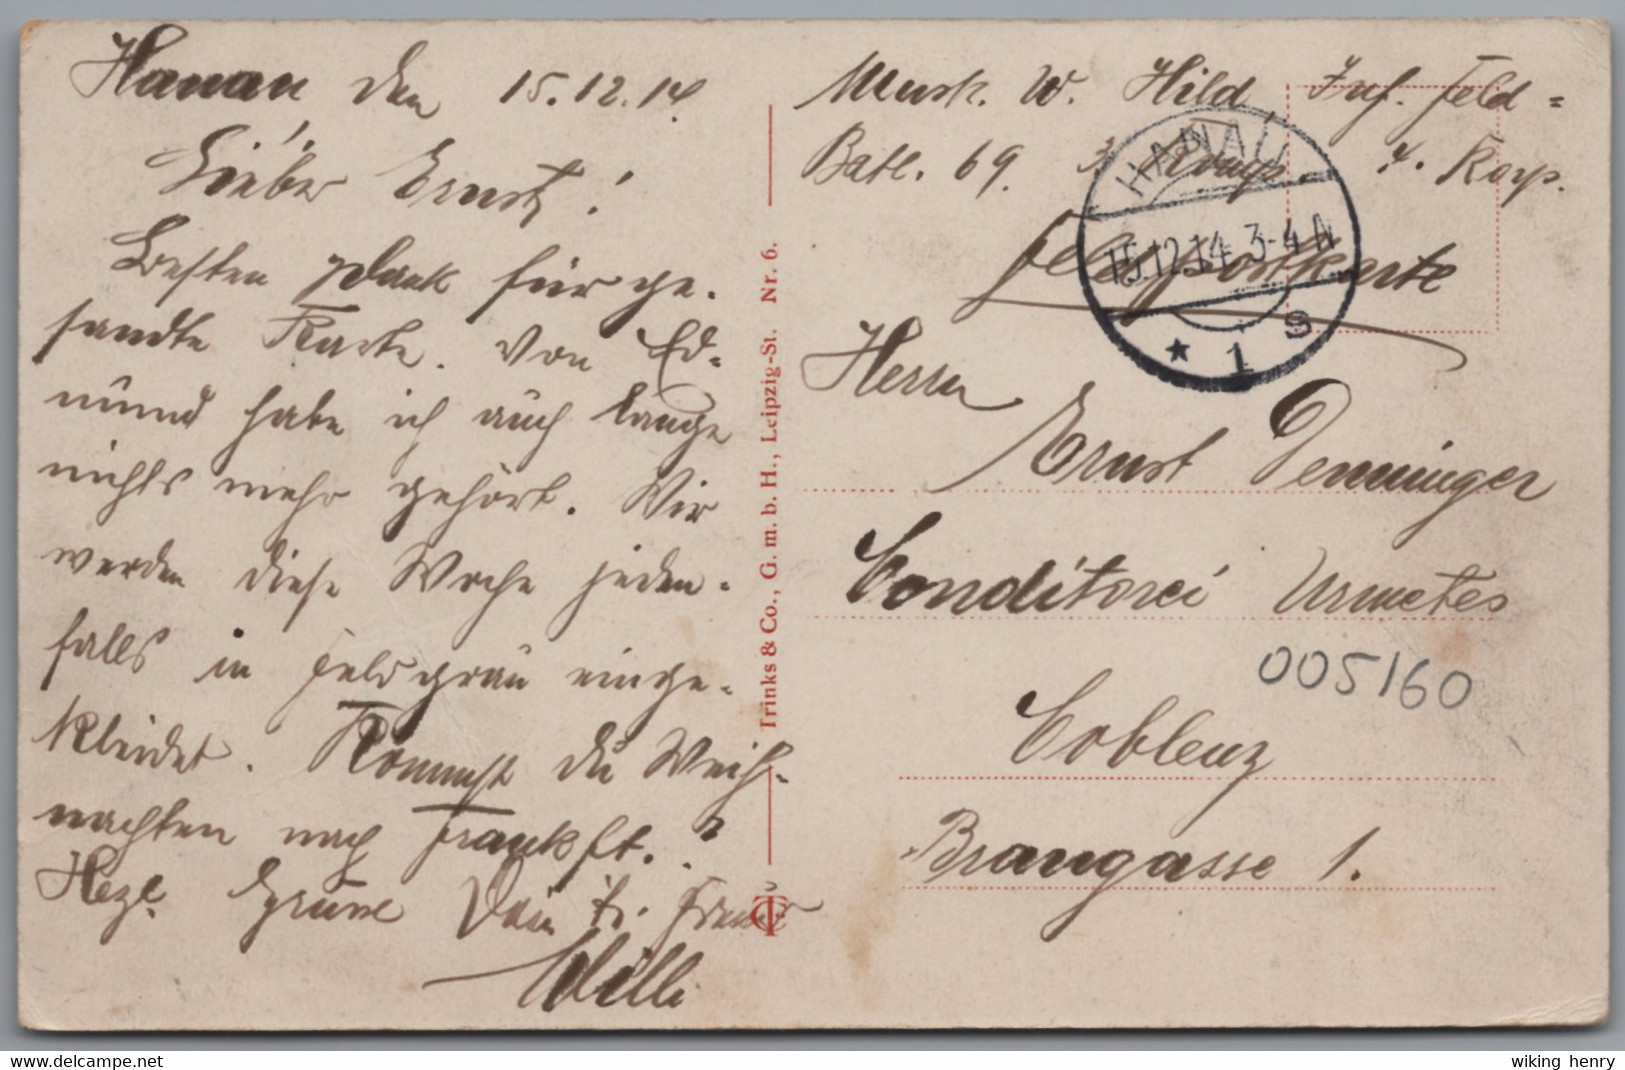 Hanau den 15.12.14.
Lieber Ernst!
Besten Dank für ge-
sandte Karte. Von Ed-
mund habe ich auch lange
nichts mehr gehört. Wir
werden diese Woche jeden-
falls in feldgrau einge-
kleidet. Kommst du Weih-
nachten nach Frankft.?
Herzl. Grüsse Dein Freund
Willi
Trinks & Co., G. m. b. H., Leipzig-St. Nr. 6.
Musk. W. Hild Inf. Feld-
Batl. 69. 3. Komp. Korp.
Feldpostkarte
HANAU
15.12.14. 3-4 N
* 1 s
Herrn
Ernst Denninger
Conditorei Urmetes
005160
Coblenz
Braugasse 1.
delcampe.net
wiking henry